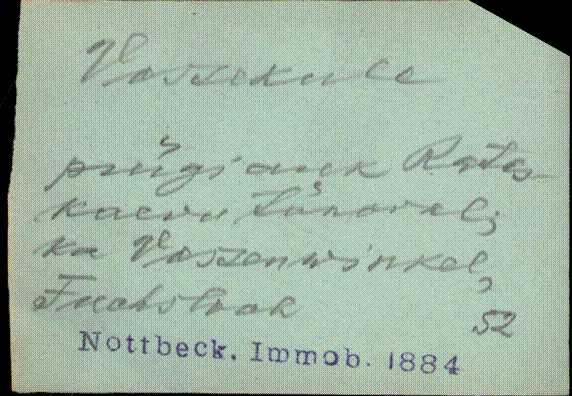 Vossekule
prügiauk Ratas-
kaevu tänaval;
ka Vossenwinkel,
Fuchslook
52
Nottbeck. Immob. 1884